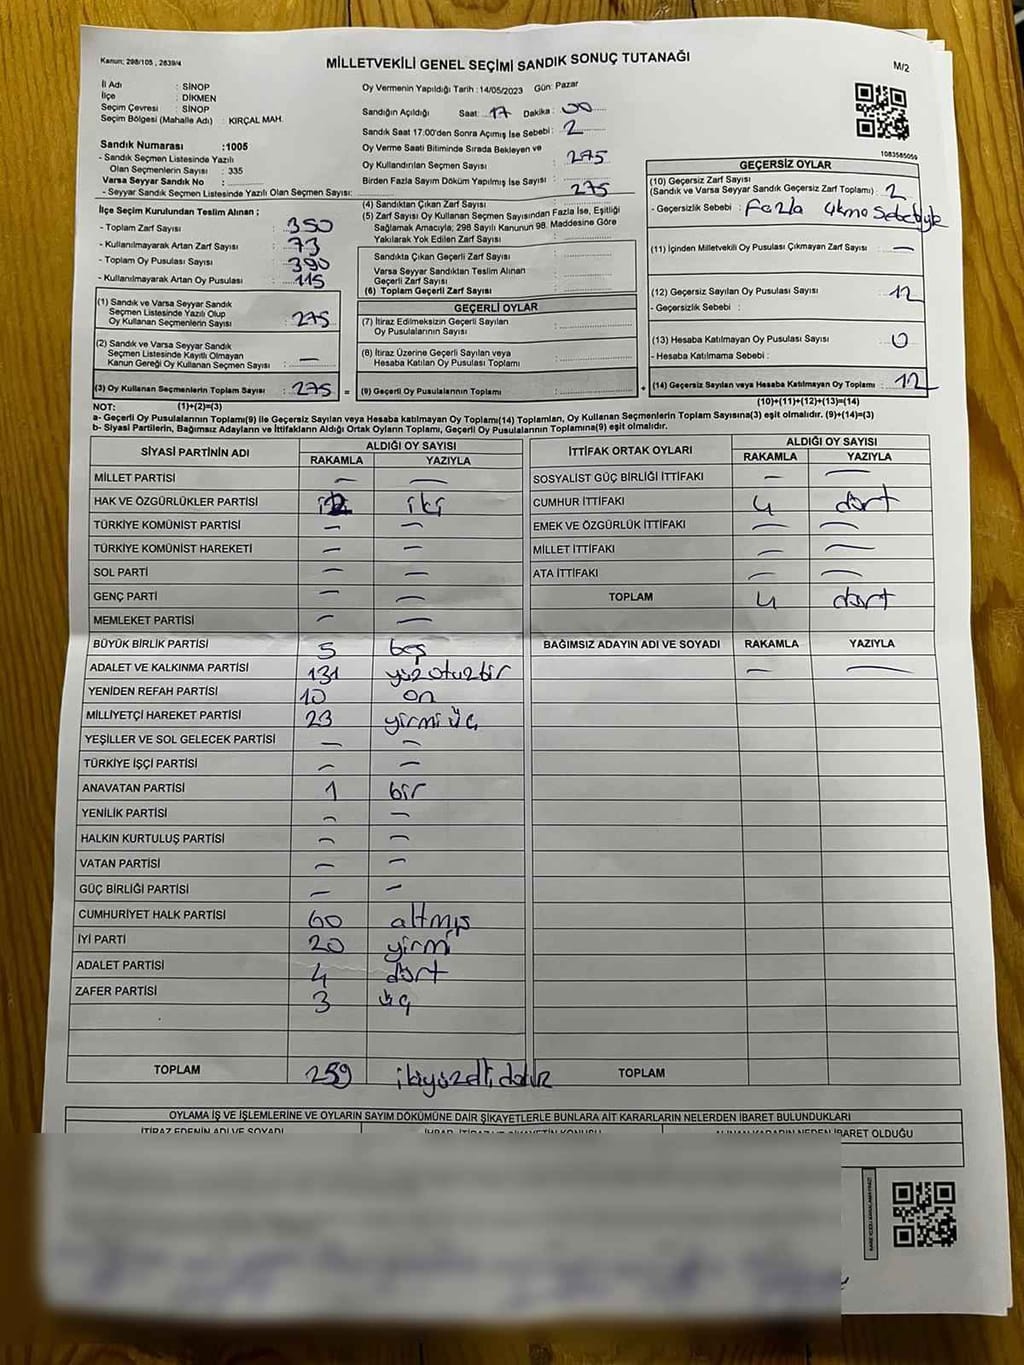 Kanun; 298/105 , 2839/4
MİLLETVEKİLİ GENEL SEÇİMİ SANDIK SONUÇ TUTANAĞI
M/2
İl Adı : SİNOP
İlçe : DİKMEN
Seçim Çevresi : SİNOP
Seçim Bölgesi (Mahalle Adı) : KIRÇAL MAH.
Sandık Numarası :1005
- Sandık Seçmen Listesinde Yazılı
Olan Seçmenlerin Sayısı : 335
Varsa Seyyar Sandık No :
- Seyyar Sandık Seçmen Listesinde Yazılı Olan Seçmen Sayısı:
Oy Vermenin Yapıldığı Tarih : 14/05/2023 Gün: Pazar
Sandığın Açıldığı Saat: 17 Dakika : 00
Sandık Saat 17.00'den Sonra Açımış İse Sebebi : 2
Oy Verme Saati Bitiminde Sırada Bekleyen ve
Oy Kullandırılan Seçmen Sayısı : 275
Birden Fazla Sayım Döküm Yapılmış İse Sayısı : 275
1083585059
İlçe Seçim Kurulundan Teslim Alınan ;
- Toplam Zarf Sayısı : 350
- Kullanılmayarak Artan Zarf Sayısı : 73
- Toplam Oy Pusulası Sayısı : 390
- Kullanılmayarak Artan Oy Pusulası : 115
(1) Sandık ve Varsa Seyyar Sandık
Seçmen Listesinde Yazılı Olup
Oy Kullanan Seçmenlerin Sayısı : 275
(2) Sandık ve Varsa Seyyar Sandık
Seçmen Listesinde Kayıtlı Olmayan
Kanun Gereği Oy Kullanan Seçmen Sayısı : —
(3) Oy Kullanan Seçmenlerin Toplam Sayısı : 275 =
(1)+(2)=(3)
(4) Sandıktan Çıkan Zarf Sayısı :
(5) Zarf Sayısı Oy Kullanan Seçmen Sayısından Fazla İse, Eşitliği
Sağlamak Amacıyla; 298 Sayılı Kanunun 98. Maddesine Göre
Yakılarak Yok Edilen Zarf Sayısı :
Sandıkta Çıkan Geçerli Zarf Sayısı :
Varsa Seyyar Sandıktan Teslim Alınan
Geçerli Zarf Sayısı :
(6) Toplam Geçerli Zarf Sayısı :
GEÇERLİ OYLAR
(7) İtiraz Edilmeksizin Geçerli Sayılan
Oy Pusulalarının Sayısı :
(8) İtiraz Üzerine Geçerli Sayılan veya
Hesaba Katılan Oy Pusulası Toplamı :
(9) Geçerli Oy Pusulalarının Toplamı : +
GEÇERSİZ OYLAR
(10) Geçersiz Zarf Sayısı
(Sandık ve Varsa Seyyar Sandık Geçersiz Zarf Toplamı) : 2
- Geçersizlik Sebebi : Fazla çıkma sebebiyle
(11) İçinden Milletvekili Oy Pusulası Çıkmayan Zarf Sayısı : —
(12) Geçersiz Sayılan Oy Pusulası Sayısı : 12
- Geçersizlik Sebebi :
(13) Hesaba Katılmayan Oy Pusulası Sayısı : 0
- Hesaba Katılmama Sebebi :
(14) Geçersiz Sayılan veya Hesaba Katılmayan Oy Toplamı : 12
(10)+(11)+(12)+(13)=(14)
NOT:
a- Geçerli Oy Pusulalarının Toplamı(9) ile Geçersiz Sayılan veya Hesaba katılmayan Oy Toplamı(14) Toplamları, Oy Kullanan Seçmenlerin Toplam Sayısına(3) eşit olmalıdır. (9)+(14)=(3)
b- Siyasi Partilerin, Bağımsız Adayların ve İttifakların Aldığı Ortak Oyların Toplamı, Geçerli Oy Pusulalarının Toplamına(9) eşit olmalıdır.
SİYASİ PARTİNİN ADI ALDIĞI OY SAYISI
RAKAMLA YAZIYLA
MİLLET PARTİSİ — —
HAK VE ÖZGÜRLÜKLER PARTİSİ 2 iki
TÜRKİYE KOMÜNİST PARTİSİ — —
TÜRKİYE KOMÜNİST HAREKETİ — —
SOL PARTİ — —
GENÇ PARTİ — —
MEMLEKET PARTİSİ — —
BÜYÜK BİRLİK PARTİSİ 5 beş
ADALET VE KALKINMA PARTİSİ 131 yüzotuzbir
YENİDEN REFAH PARTİSİ 10 on
MİLLİYETÇİ HAREKET PARTİSİ 23 yirmi üç
YEŞİLLER VE SOL GELECEK PARTİSİ — —
TÜRKİYE İŞÇİ PARTİSİ — —
ANAVATAN PARTİSİ 1 bir
YENİLİK PARTİSİ — —
HALKIN KURTULUŞ PARTİSİ — —
VATAN PARTİSİ — —
GÜÇ BİRLİĞİ PARTİSİ — —
CUMHURİYET HALK PARTİSİ 60 altmış
İYİ PARTİ 20 yirmi
ADALET PARTİSİ 4 dört
ZAFER PARTİSİ 3 üç
TOPLAM 259 ikiyüzelli dokuz
İTTİFAK ORTAK OYLARI ALDIĞI OY SAYISI
RAKAMLA YAZIYLA
SOSYALİST GÜÇ BİRLİĞİ İTTİFAKI — —
CUMHUR İTTİFAKI 4 dört
EMEK VE ÖZGÜRLÜK İTTİFAKI — —
MİLLET İTTİFAKI — —
ATA İTTİFAKI — —
TOPLAM 4 dört
BAĞIMSIZ ADAYIN ADI VE SOYADI RAKAMLA YAZIYLA
— —
TOPLAM
OYLAMA İŞ VE İŞLEMLERİNE VE OYLARIN SAYIM DÖKÜMÜNE DAİR ŞİKAYETLERLE BUNLARA AİT KARARLARIN NELERDEN İBARET BULUNDUKLARI
İTİRAZ EDENİN ADI VE SOYADI
ALINAN KARARIN NEDEN İBARET OLDUĞU